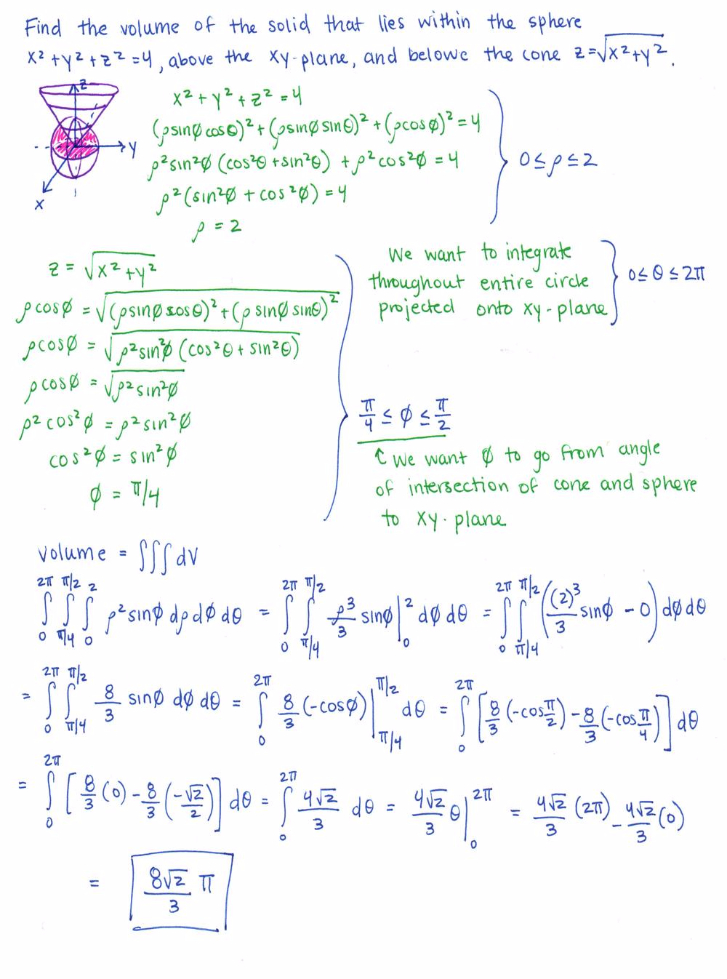 Find the volume of the solid that lies within the sphere
x² + y² + z² = 4, above the xy-plane, and belowe the cone z = √(x² + y²).
z
y
x
x² + y² + z² = 4
(ρsinφ cosθ)² + (ρsinφ sinθ)² + (ρcosφ)² = 4
ρ²sin²φ (cos²θ + sin²θ) + ρ²cos²φ = 4
ρ²(sin²φ + cos²φ) = 4
ρ = 2
0 ≤ ρ ≤ 2
z = √(x² + y²)
ρcosφ = √((ρsinφ cosθ)² + (ρ sinφ sinθ)²)
ρcosφ = √(ρ²sin²φ (cos²θ + sin²θ))
ρcosφ = √(ρ²sin²φ)
ρ²cos²φ = ρ²sin²φ
cos²φ = sin²φ
φ = π/4
We want to integrate
throughout entire circle
projected onto xy-plane
0 ≤ θ ≤ 2π
π/4 ≤ φ ≤ π/2
↑ We want φ to go from angle
of intersection of cone and sphere
to xy-plane
volume = ∫∫∫ dV
∫₀^{2π} ∫_{π/4}^{π/2} ∫₀² ρ²sinφ dρ dφ dθ = ∫₀^{2π} ∫_{π/4}^{π/2} ρ³/3 sinφ |₀² dφ dθ = ∫₀^{2π} ∫_{π/4}^{π/2} ((2)³/3 sinφ − 0) dφ dθ
= ∫₀^{2π} ∫_{π/4}^{π/2} 8/3 sinφ dφ dθ = ∫₀^{2π} 8/3 (−cosφ) |_{π/4}^{π/2} dθ = ∫₀^{2π} [8/3 (−cos π/2) − 8/3 (−cos π/4)] dθ
= ∫₀^{2π} [8/3 (0) − 8/3 (−√2/2)] dθ = ∫₀^{2π} 4√2/3 dθ = 4√2/3 θ |₀^{2π} = 4√2/3 (2π) − 4√2/3 (0)
= 8√2/3 π